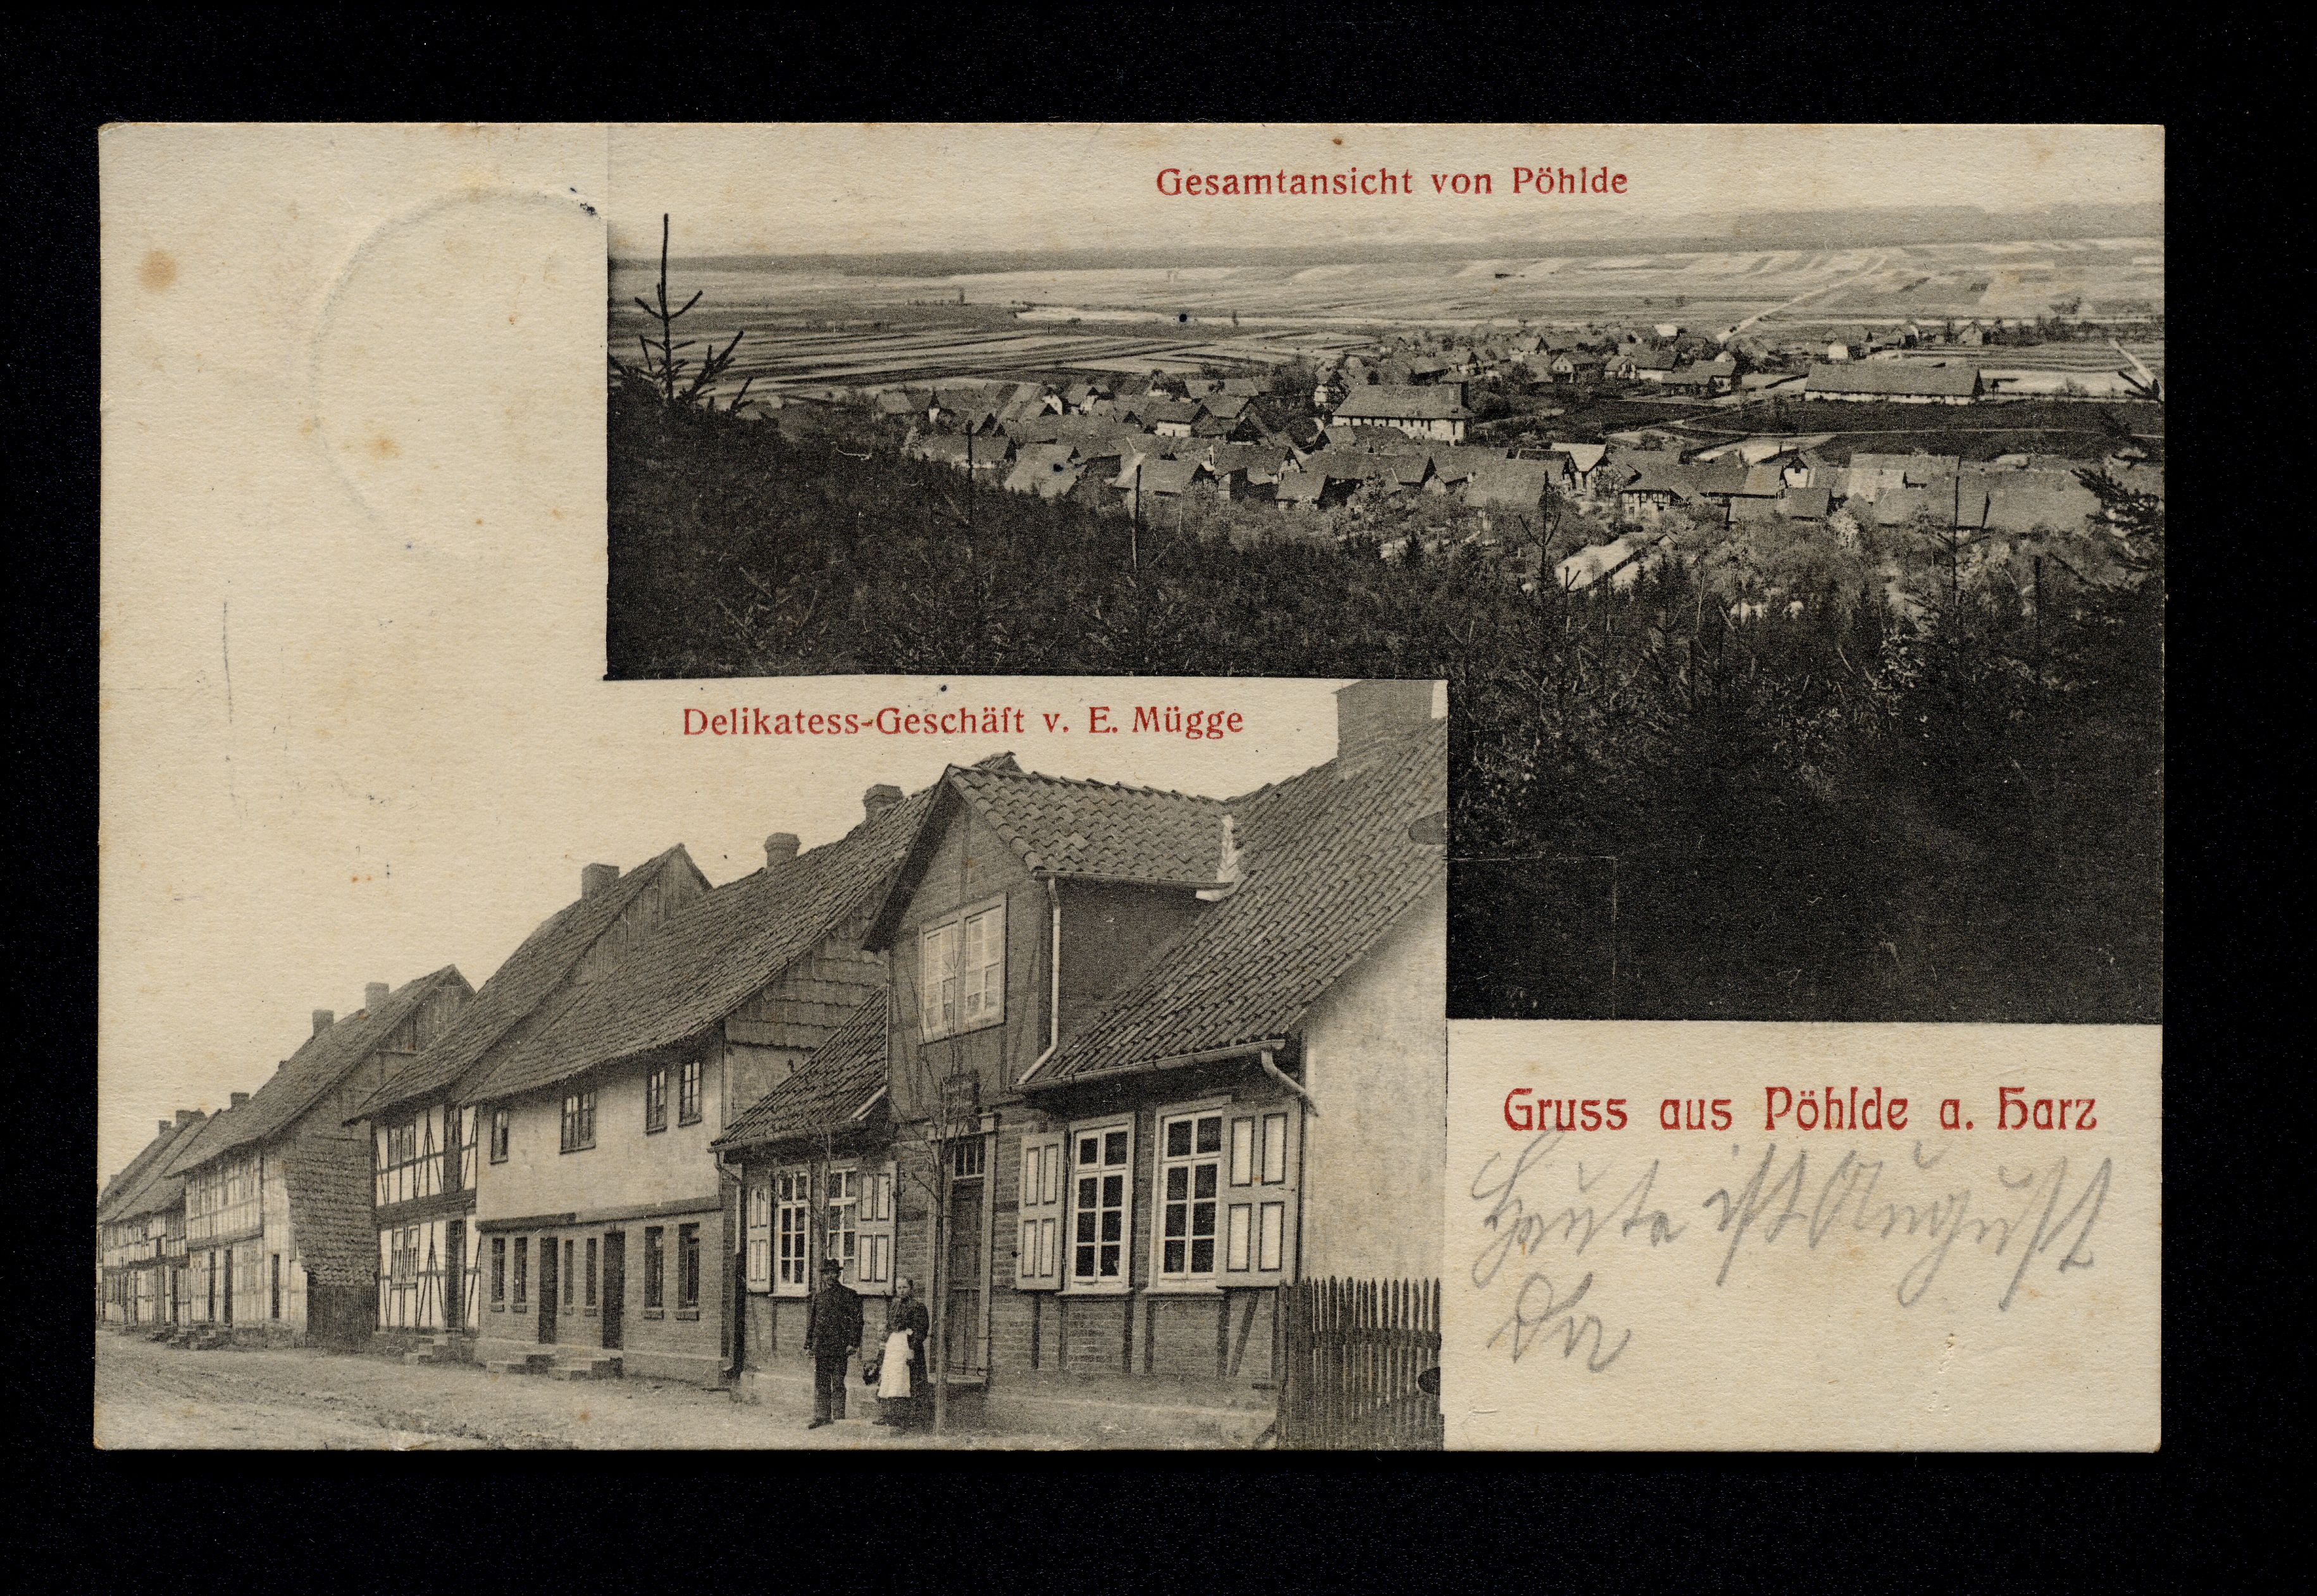 Gesamtansicht von Pöhlde
Delikatess-Geschäft v. E. Mügge
Gruss aus Pöhlde a. Harz
Heute ist August
Da